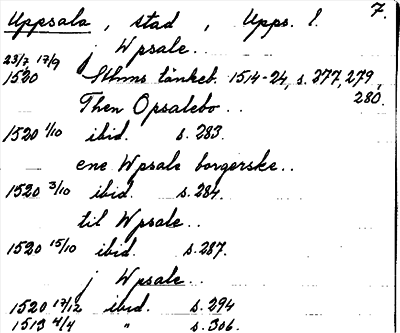 Uppsala, stad, Upps. l. 7.
j Wpsale..
23/7 17/9
1520 Sthms tänkeb. 1514-24, s. 277, 279,
280.
Then Opsalebo..
1520 1/10 ibid. s. 283.
ene Wpsale borgerske..
1520 3/10 ibid. s. 284.
til Wpsale..
1520 15/10 ibid. s. 287.
j Wpsale..
1520 17/12 ibid. s. 294
1513 4/4 " s. 306.